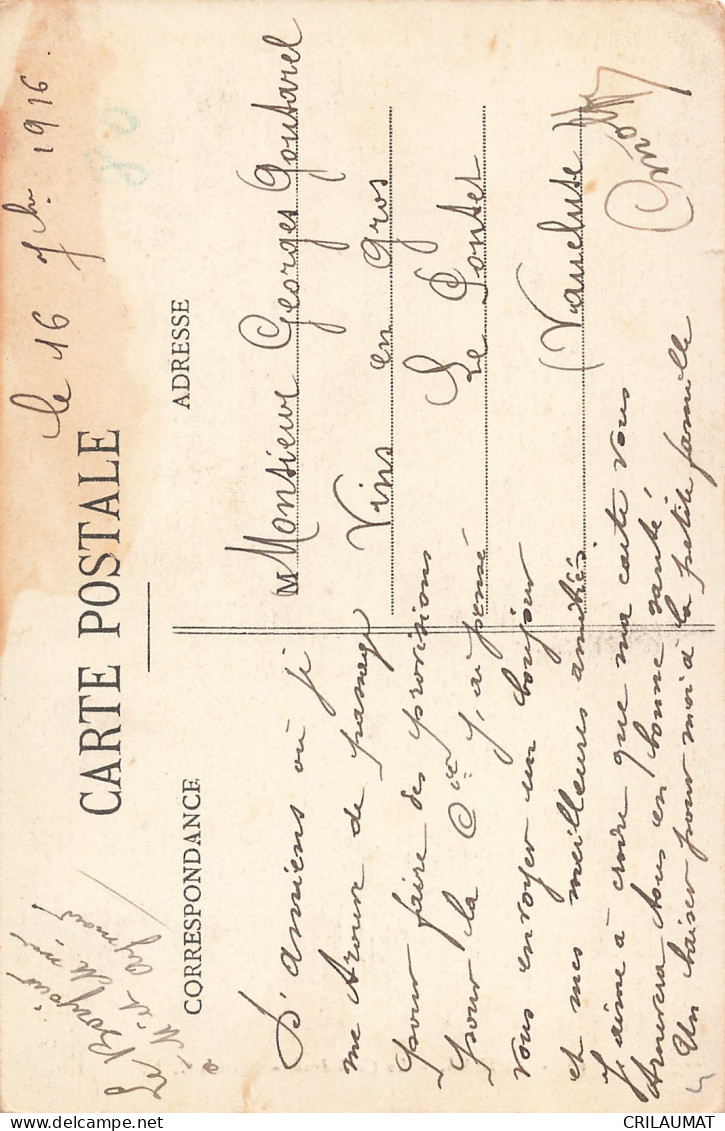 le 16 7bre 1916.
CARTE POSTALE
CORRESPONDANCE
ADRESSE
Bonjour
à M et Mme
Aymard
D'amiens où je
me trouve de passage
pour faire des provisions
pour la Cie j'ai pensé
vous envoyer un bonjour
et mes meilleures amitiés.
J'aime à croire que ma carte vous
trouvera tous en bonne santé,
Un baiser pour moi à la petite famille
M Monsieur Georges Goutarel
Vins en Gros
Le Pontet
(Vaucluse)
80
CRILAUMAT